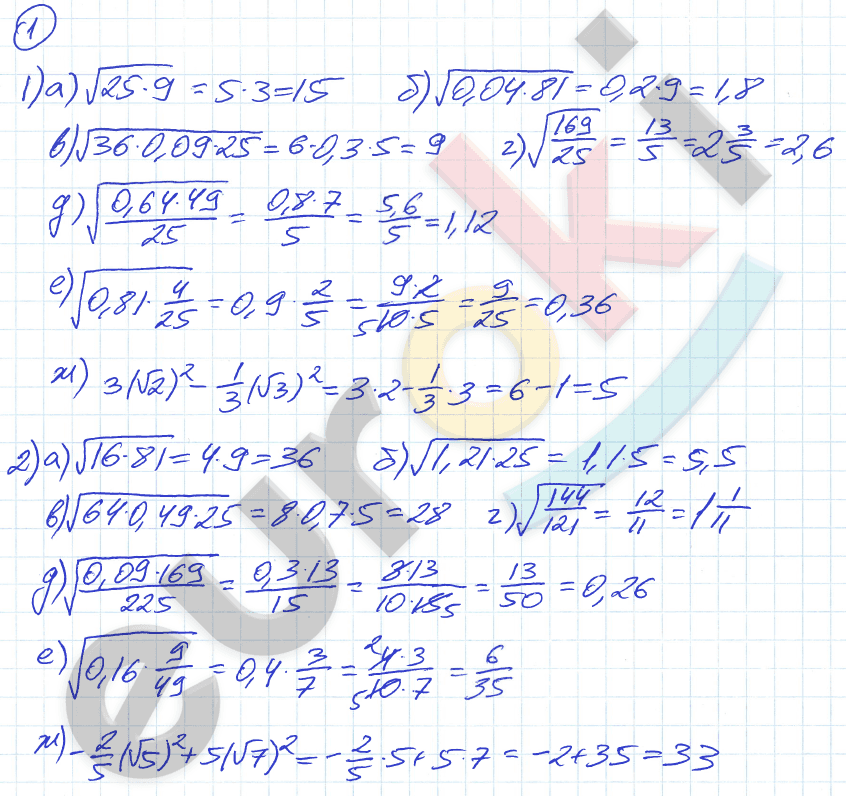 1
1) а) √25·9 = 5·3=15 б) √0,04·81 = 0,2·9 = 1,8
в) √36·0,09·25 = 6·0,3·5 = 9 г) √169/25 = 13/5 = 2 3/5 = 2,6
д) √0,64·49/25 = 0,8·7/5 = 5,6/5 = 1,12
е) √0,81·4/25 = 0,9·2/5 = 9·2/5 10·5 = 9/25 = 0,36
ж) 3(√2)² - 1/3(√3)² = 3·2 - 1/3·3 = 6 - 1 = 5
2) а) √16·81 = 4·9 = 36 б) √1,21·25 = 1,1·5 = 5,5
в) √64·0,49·25 = 8·0,7·5 = 28 г) √144/121 = 12/11 = 1 1/11
д) √0,09·169/225 = 0,3·13/15 = 3·13/10·15 5 = 13/50 = 0,26
е) √0,16·9/49 = 0,4·3/7 = 2 4·3/5 10·7 = 6/35
ж) -2/5(√5)² + 5(√7)² = -2/5·5 + 5·7 = -2+35 = 33
euroki